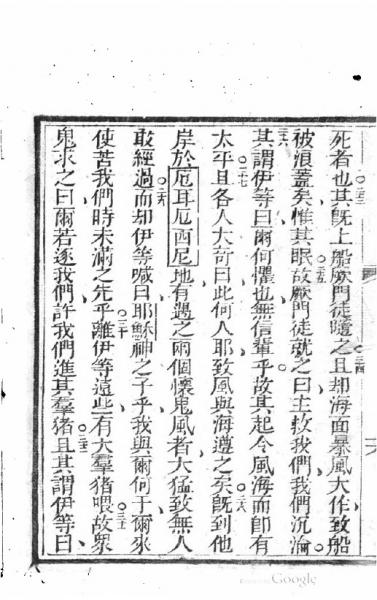 死者也其旣上船厥門徒隨之且却海面暴風大作致船
被浪蓋矣惟其眠故厥門徒就之曰主救我們我們沉淪
其謂伊等曰爾何懼也無信輩乎故其起令風海而卽有
太平且各人大竒曰此何人耶致風與海遵之矣旣到他
岸於厄耳厄西尼地有遇之兩個懷鬼風者大猛致無人
敢經過而却伊等喊曰耶穌神之子乎我與爾何于爾來
使苦我們時未滿之先乎離伊等遠些有大羣猪喂故衆
鬼求之曰爾若逐我們許我們進其羣猪且其謂伊等曰
Google